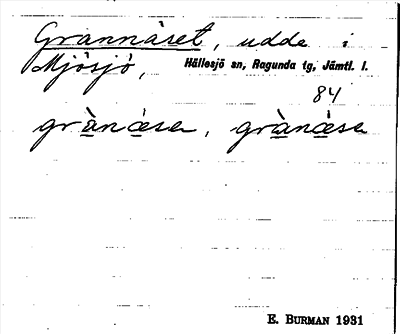 Grannäset, udde i
Mjösjö, Hällesjö sn, Ragunda tg, Jämtl. l.
84
grànǽsa, grànǽsa
E. BURMAN 1931